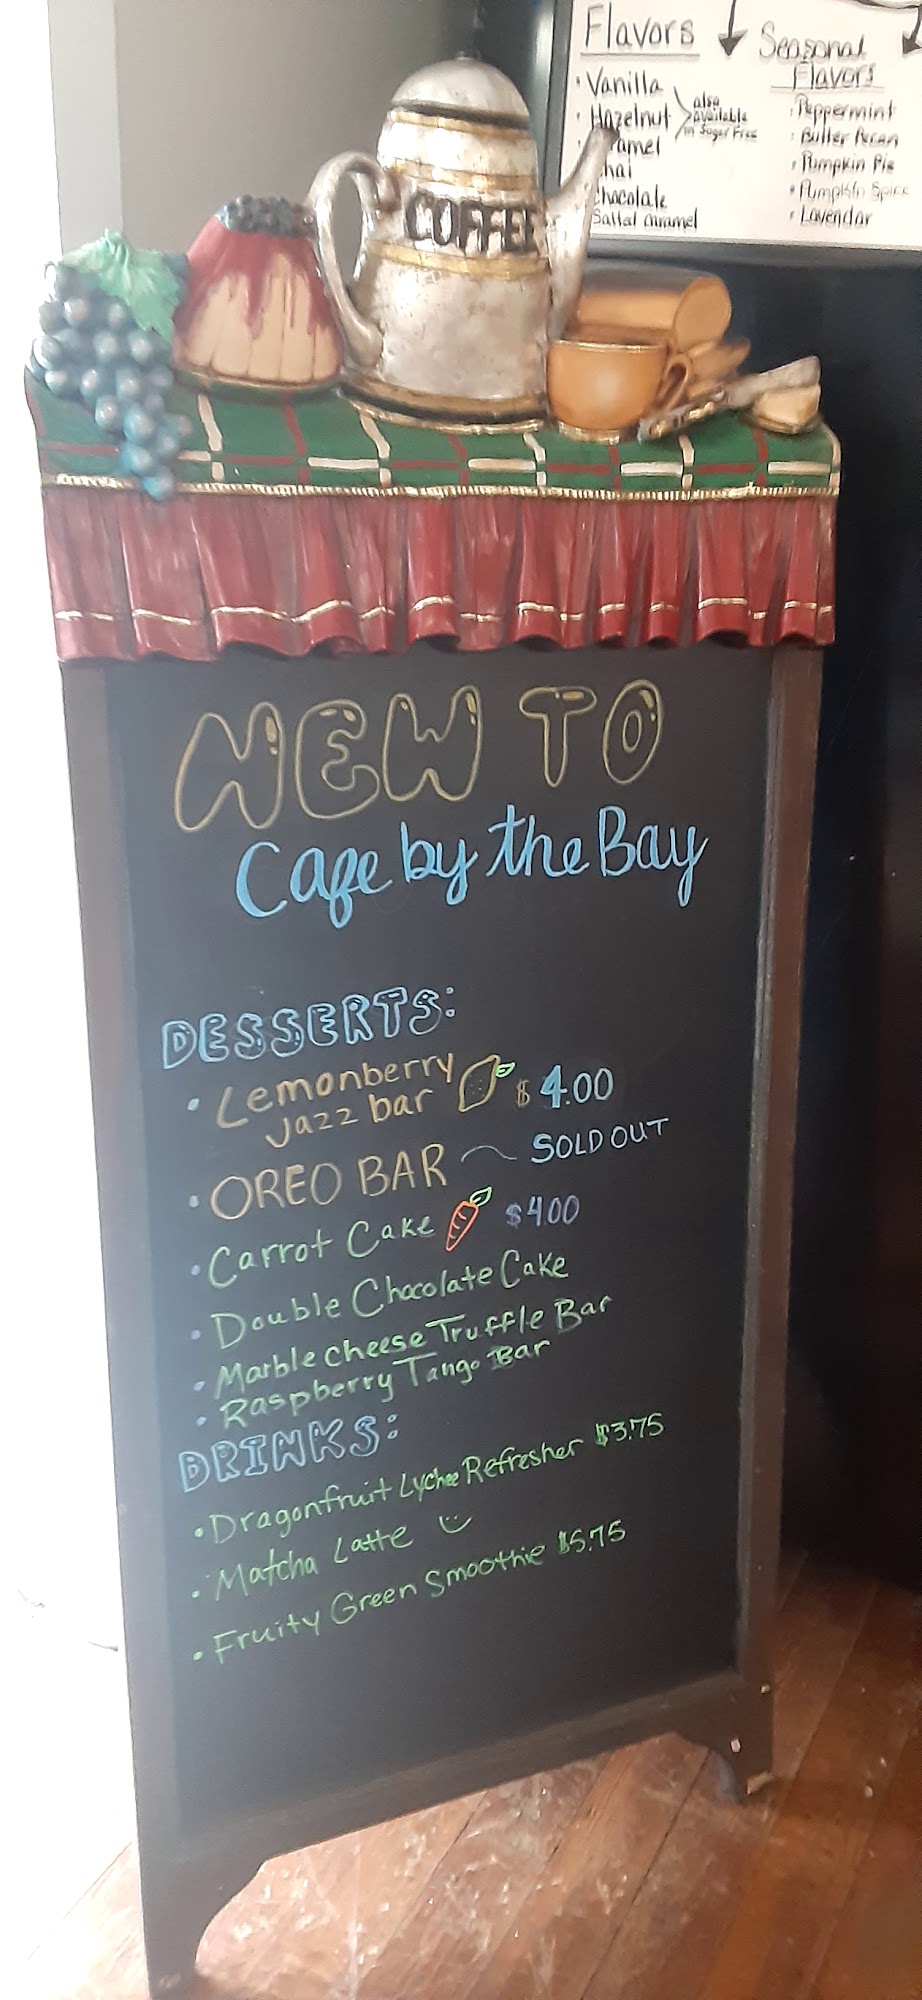 Flavors
• Vanilla
• Hazelnut
Chocolate
Salted Caramel
also
available
in Sugar Free
Seasonal
Flavors
• Peppermint
• Butter Pecan
• Pumpkin Pie
• Pumpkin Spice
• Lavendar
COFFEE
NEW TO
Cafe by the Bay
DESSERTS:
• Lemonberry
Jazz bar $4.00
• OREO BAR SOLD OUT
• Carrot Cake $4.00
• Double Chocolate Cake
• Marble Cheese Truffle Bar
• Raspberry Tango Bar
DRINKS:
• Dragonfruit Lychee Refresher $3.75
• Matcha Latte
• Fruity Green Smoothie $5.75